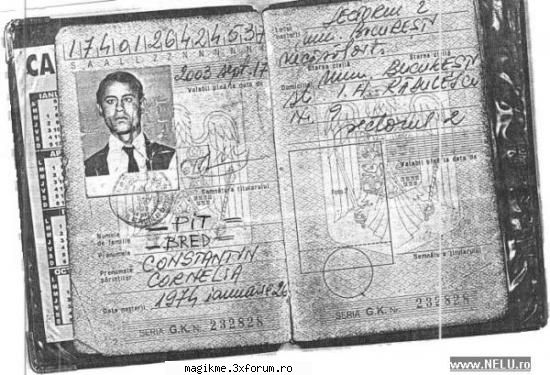 CA
1740126424537
S A A L L Z Z N N N N N
2003 sept. 17
Valabil pînă la data de
Semnătura titularului
Numele de familie
= PIT =
Prenumele
- BRED -
Prenumele părinților
CONSTANTIN
CORNELIA
Data nașterii
1974 ianuarie 26
SERIA G.K. Nr. 232828
2
Locul nașterii
sectorul 2
mun. BUCUREȘTI
Starea civilă
necăsătorit
Starea civilă
Domiciliul
mun. BUCUREȘTI
str. I. H. RĂDULESCU
nr. 9
sectorul 2
Valabil pînă la data de
Semnătura titularului
SERIA G.K. Nr. 232828
magikme.3xforum.ro
www.NELU.ro